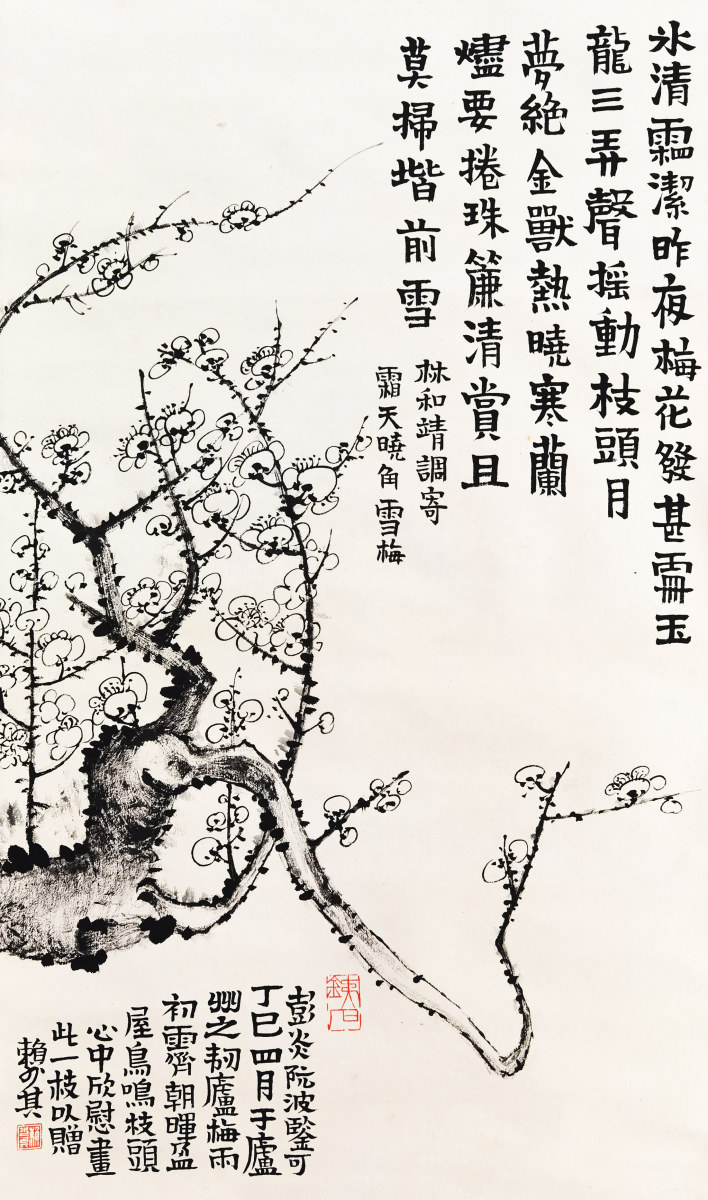 氷清霜潔昨夜梅花發甚玉
龍三弄聲摇動枝頭月
夢絶金獸熱曉寒蘭
燼要捲珠簾清賞且
莫掃堦前雪
林和靖調寄
霜天曉角雪梅
彭炎阮波鑒可
丁巳四月于廬
州之韧廬梅雨
初霽朝暉盈
屋鳥鳴枝頭
心中欣慰畫
此一枝以贈
賴少其